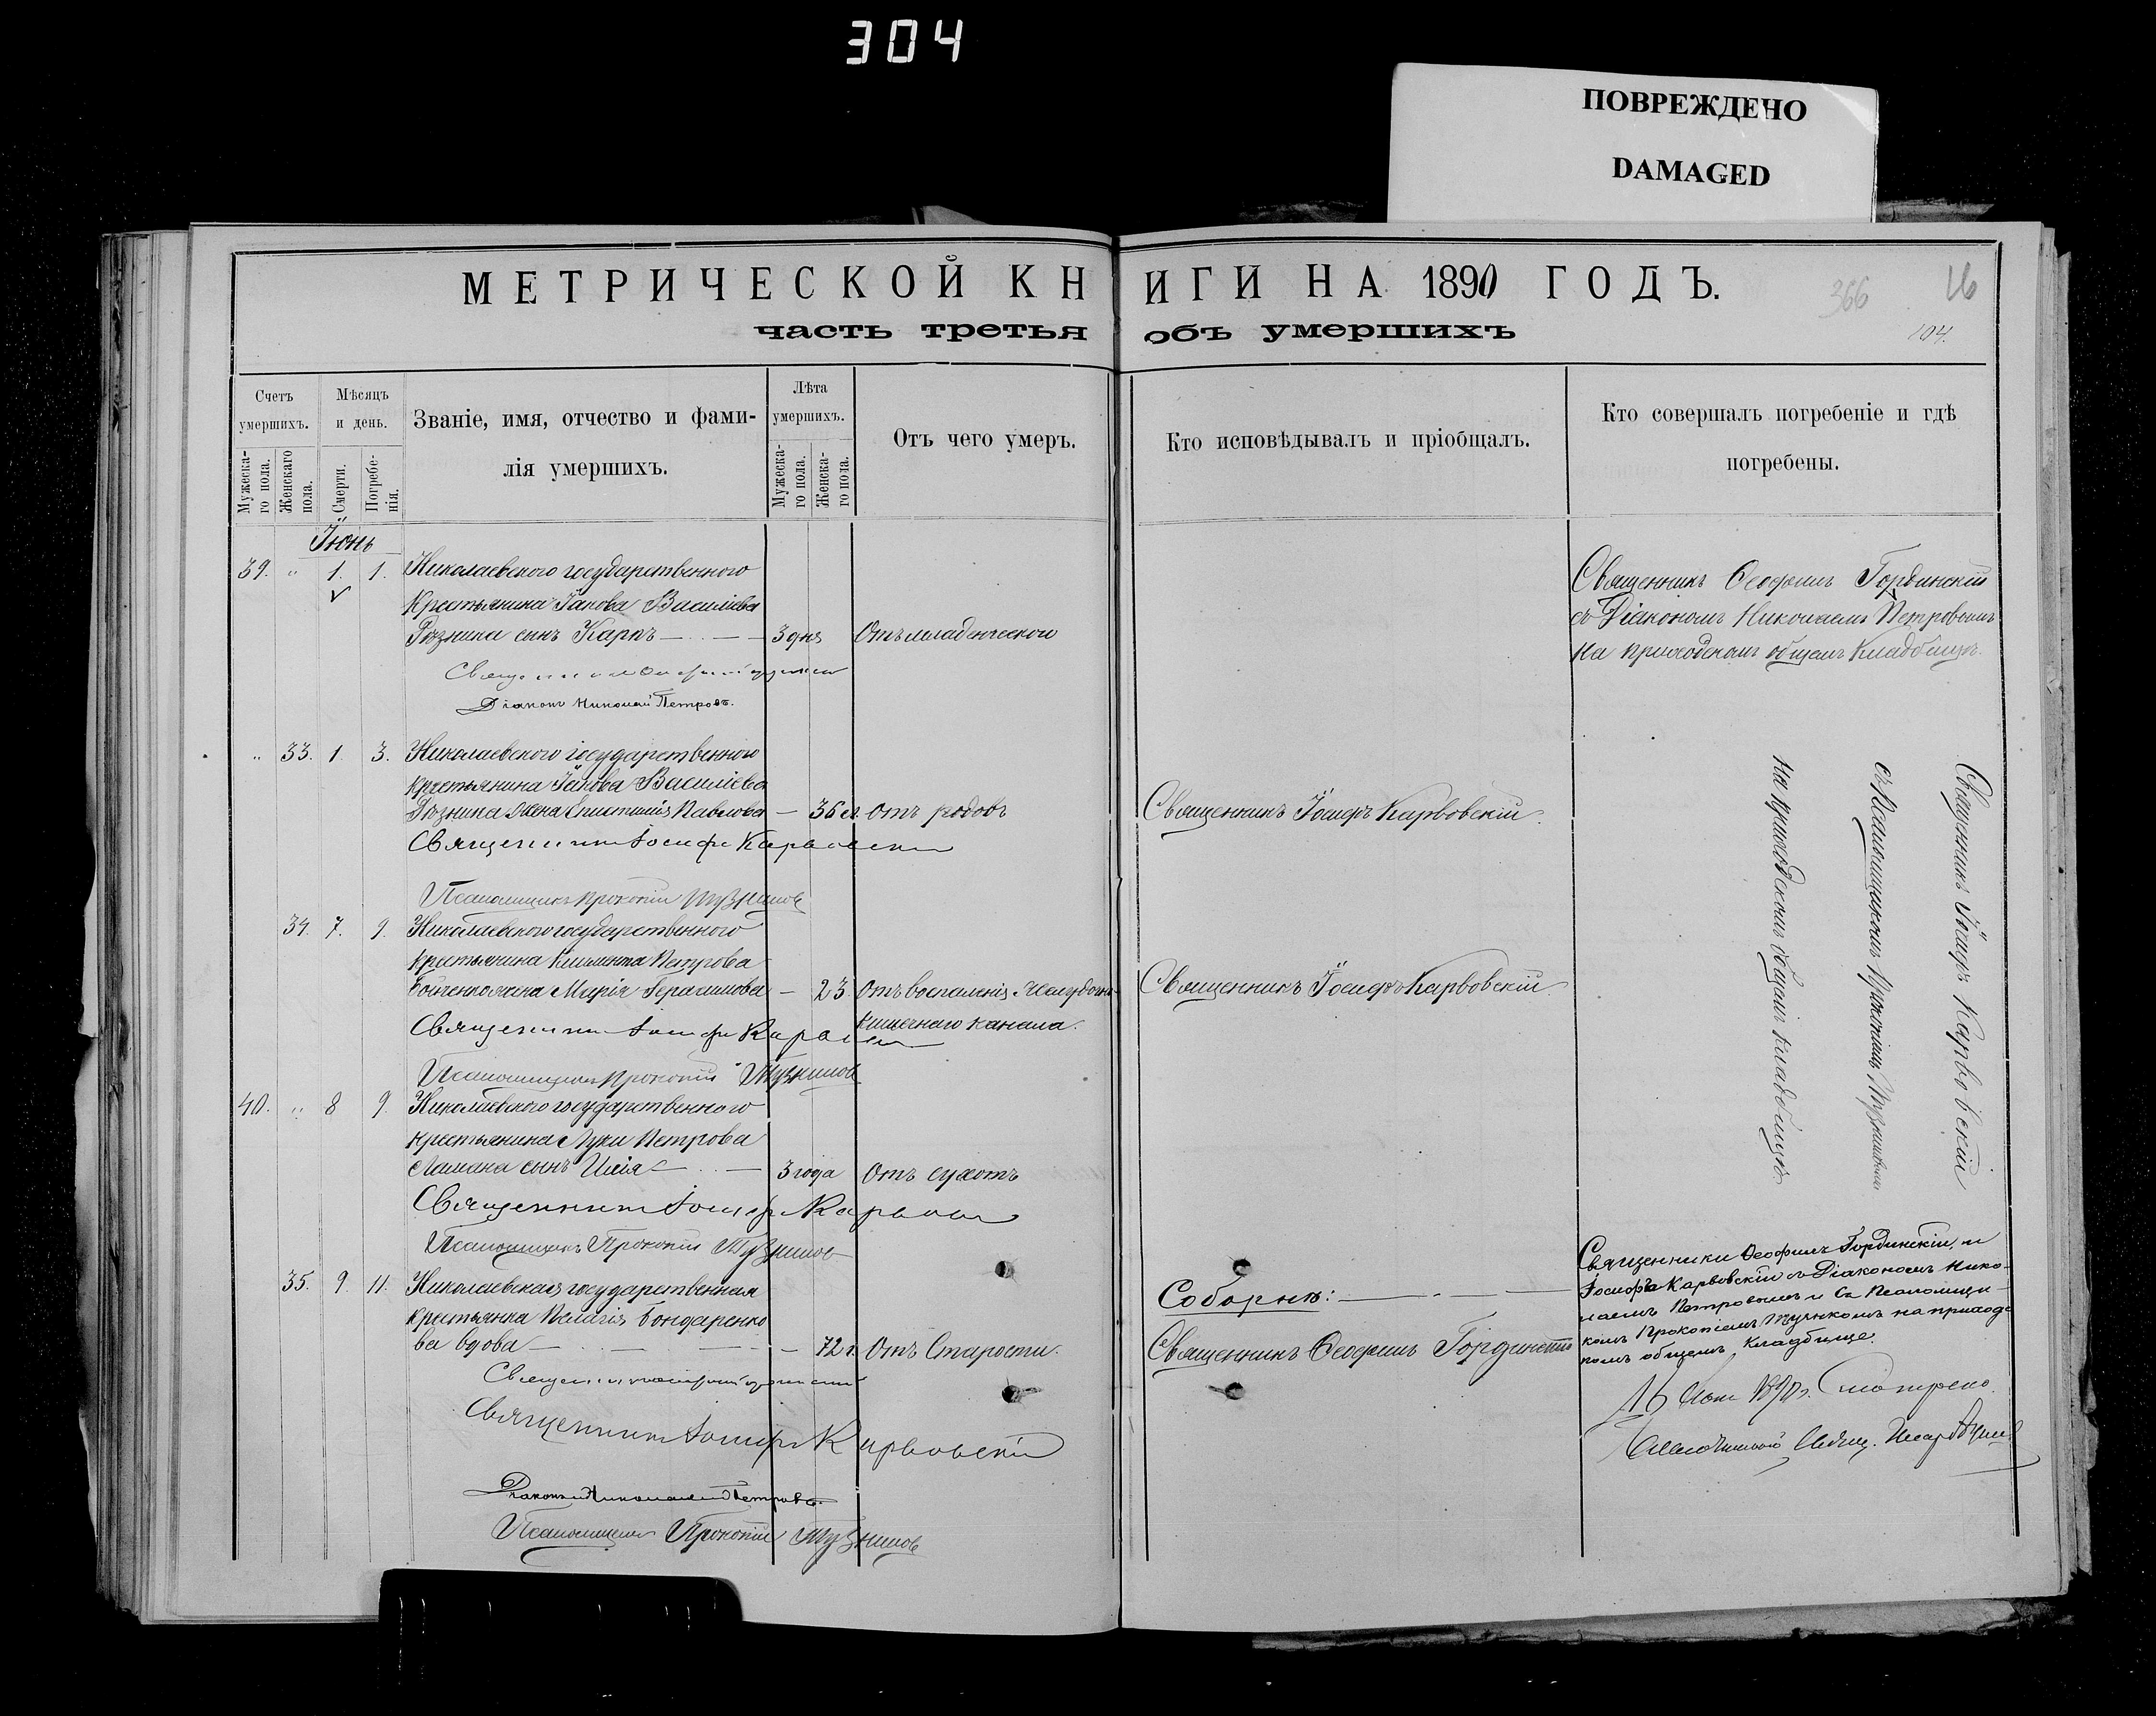 304
ПОВРЕЖДЕНО
DAMAGED
МЕТРИЧЕСКОЙ КНИГИ НА 1890 ГОДЪ.
366
16
104.
часть третья объ умершихъ
Счетъ умершихъ.
Мужеска-го пола.
Женскаго пола.
Мѣсяцъ и день.
Смерти.
Погребе-нія.
Званіе, имя, отчество и фами-
лія умершихъ.
Лѣта умершихъ.
Мужеска-го пола.
Женска-го пола.
Отъ чего умеръ.
Кто исповѣдывалъ и пріобщалъ.
Кто совершалъ погребеніе и гдѣ
погребены.
Іюнь
39. " 1. 1. Николаевского государственного
крестьянина Іакова Василіева
Рѣзника сынъ Карпъ — 3 дня Отъ младенческой
Діаконъ Николай Петровъ.
Священникъ Ѳеофилъ Гординскій
съ Діакономъ Николаемъ Петровымъ
на приходскомъ общемъ кладбищѣ.
" 33. 1. 3. Николаевского государственного
крестьянина Іакова Василіева
Рѣзника жена Епистимія Павлова — 36 л. отъ родовъ
Священникъ Іосифъ Карвовскій.
Священникъ Іосифъ Карвовскій
Псаломщикъ Прокопій
34. 7. 9. Николаевского государственного
крестьянина Климента Петрова
жена Марія Герасимова — 23 Отъ воспаленія Желудочно-
кишечнаго канала.
Священникъ Іосифъ Карвовскій.
Священникъ Іосифъ
Псаломщикъ Прокопій
40. " 8 9. Николаевского государственного
крестьянина Луки Петрова
Ламана сынъ Илія — 3 года Отъ сухотъ
Священникъ Іосифъ
Псаломщикъ Прокопій
Священникъ Іосифъ Карвовскій
съ Псаломщикомъ Прокопіемъ
на приходскомъ общемъ кладбищѣ.
35. 9. 11. Николаевская государственная
крестьянка Пелагія Бондаренко
ва вдова — 72 г. Отъ Старости.
Соборнѣ: —
Священникъ Ѳеофилъ Гординскій
Священники Ѳеофилъ Гординскій и
Іосифъ Карвовскій съ Діакономъ Нико-
лаемъ Петровымъ и Са Псаломщи-
комъ Прокопіемъ на приходс
комъ общемъ кладбище.
Священникъ
Священникъ Іосифъ Карвовскій
Діаконъ Николай Петровъ.
Псаломщикъ Прокопій
16 1890 г. Смотрено.